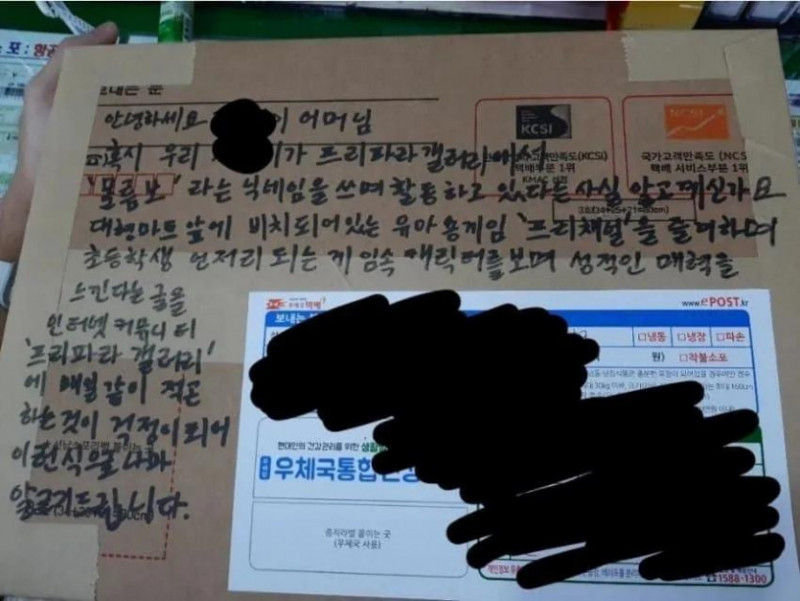 보내는 분
안녕하세요 이 어머님
혹시 우리 가 프리파라갤러리에서
"물름보" 라는 닉네임을 쓰며 활동하고 있다는 사실 알고계신가요
대형마트 앞에 비치되어있는 유아용게임 '프리채널'을 즐겨하며
초등학생 언저리 되는 게임속 캐릭터를 보며 성적인 매력을
느낀다는 글을
인터넷 커뮤니티
'프리파라 갤러리'
에 매일같이 적곤
하는것이 걱정이되어
이런식으로나마
알려드립니다.
KCSI
국가고객만족도(KCSI)
택배부문 1위
KMAC 선정
NCSI
국가고객만족도 (NCS
택배 서비스부문 1위
www.ePOST.kr
보내는
□냉동 □냉장 □파손
원) □착불소포
현대인의 건강관리를 위한
우체국통합건강
증지라벨 붙이는 곳
(우체국 사용)
☎1588-1300